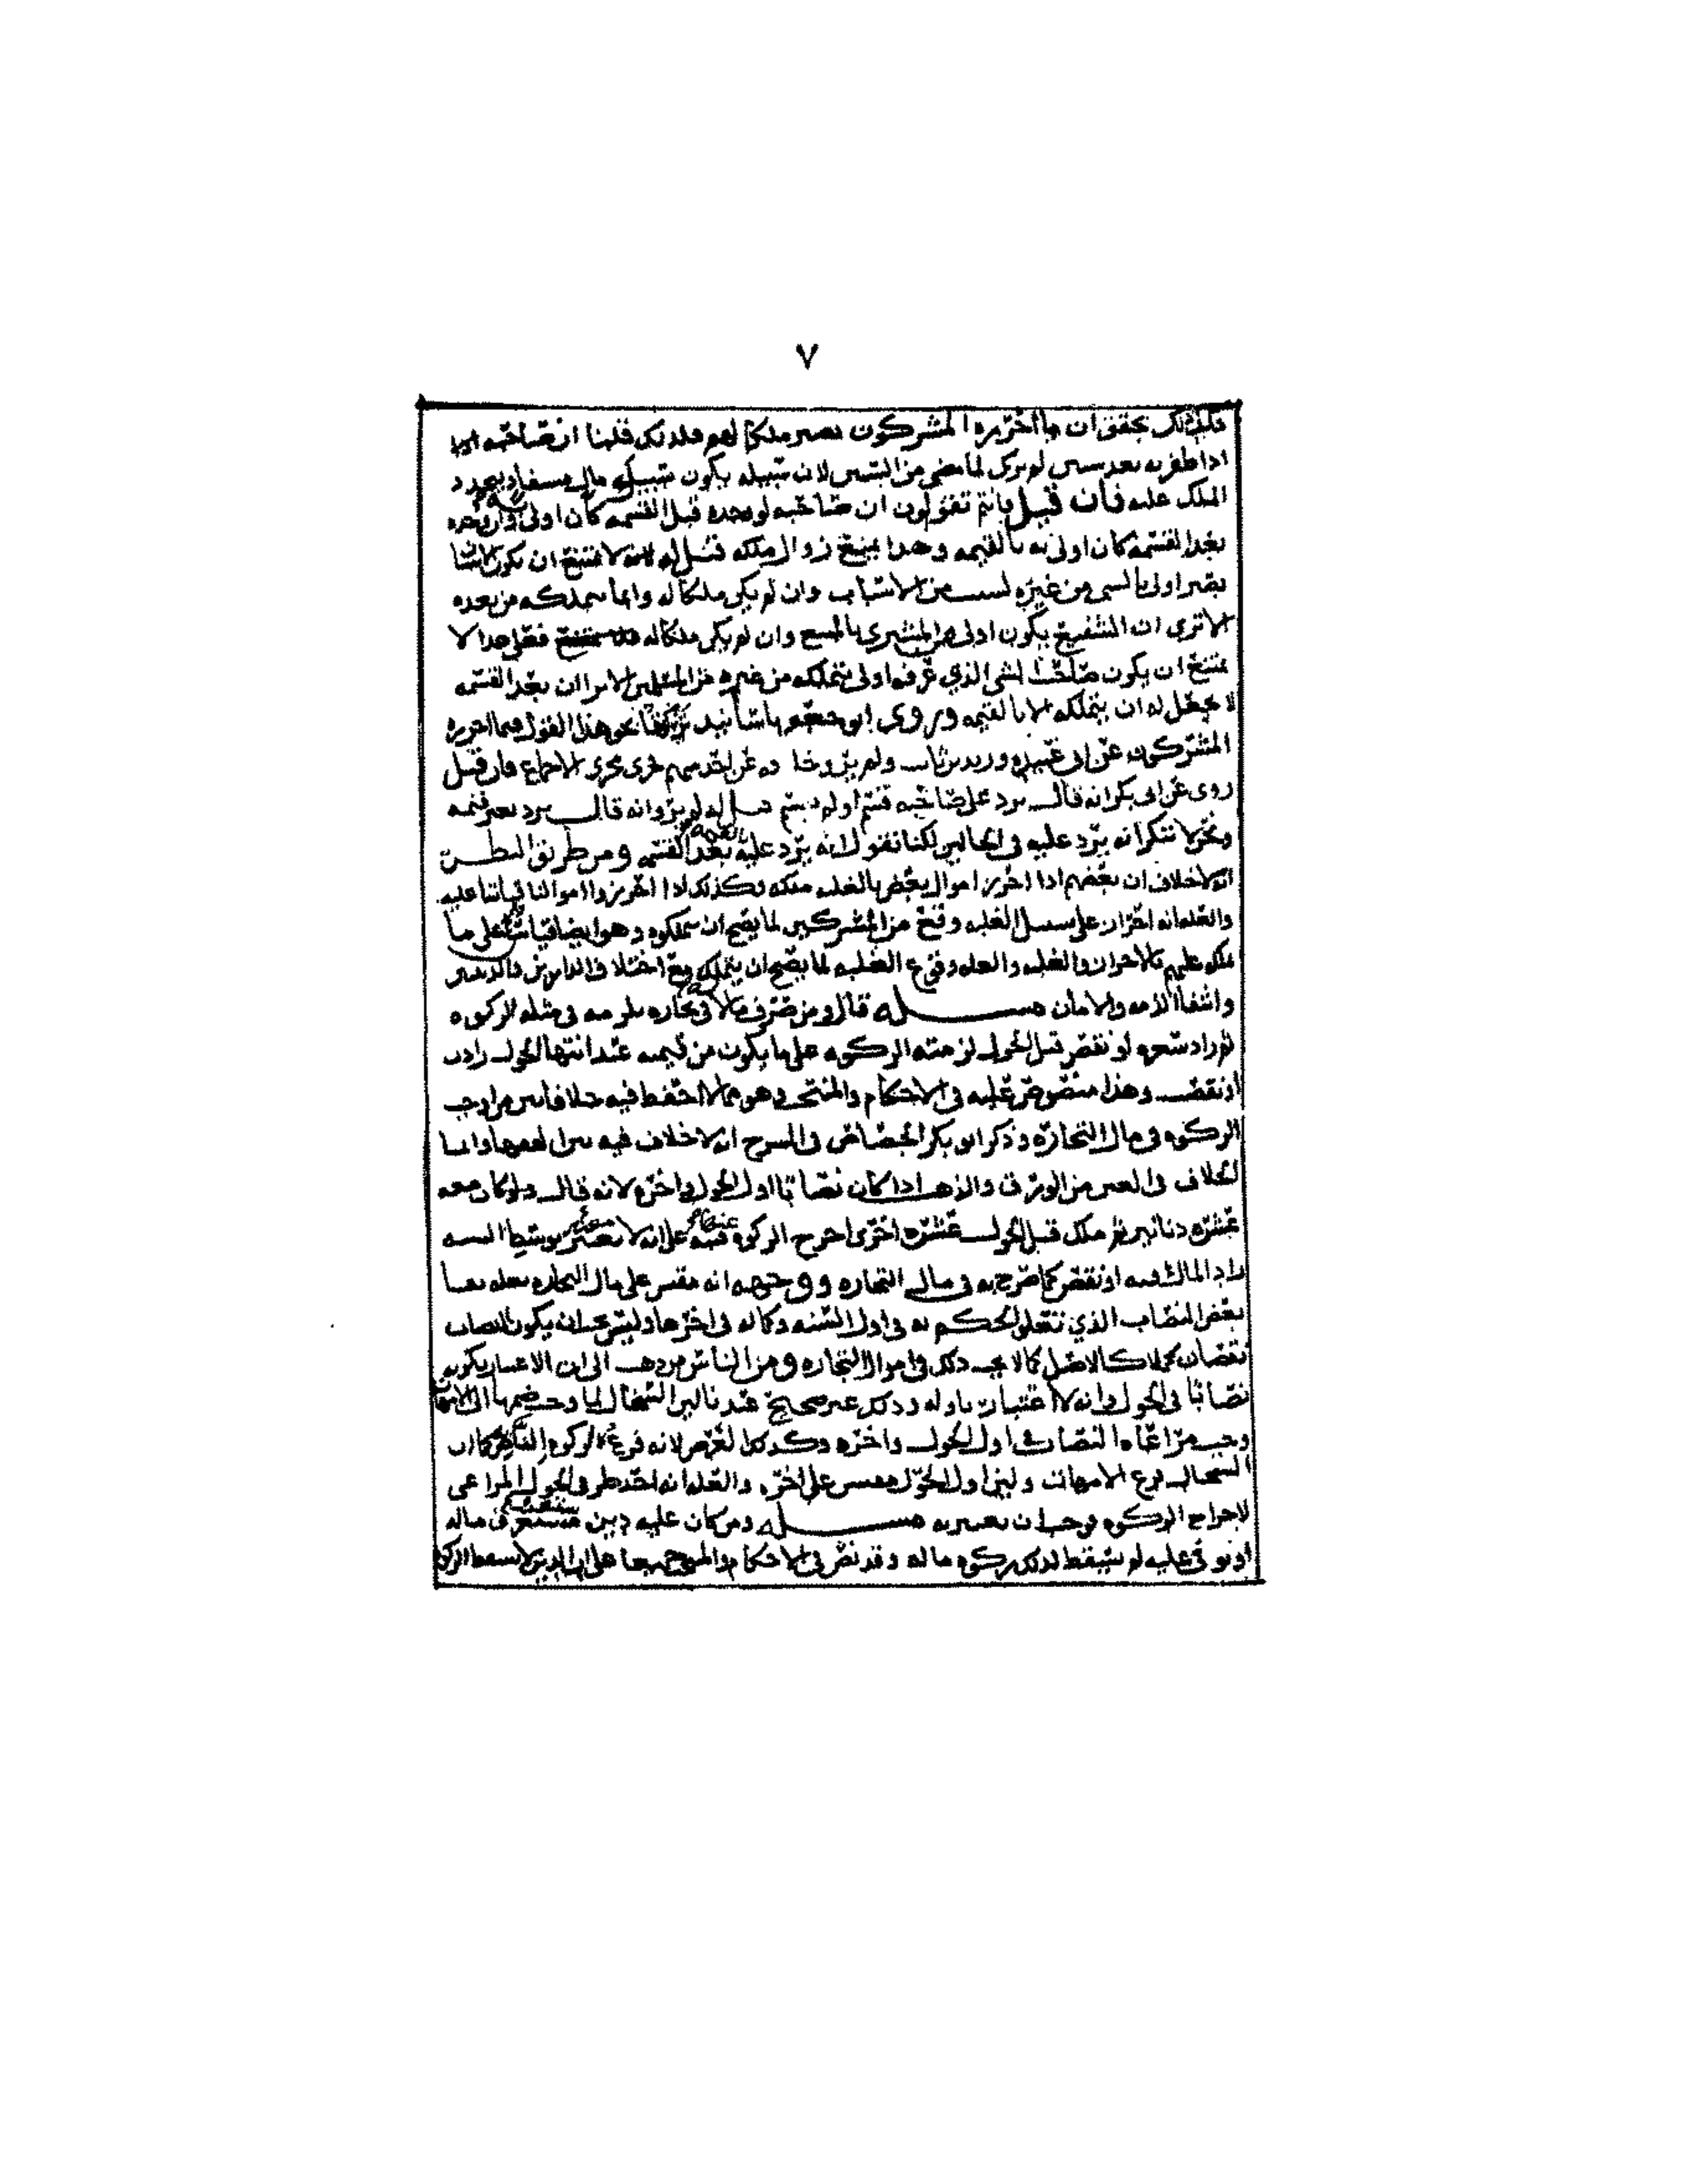 ٧
فكل ذلك يحقق ان ما احرزه المشركون يصير ملكا لهم فلذلك قلنا ان صاحبه
اذا ظفر به بعد سنين لم يزك لما مضى من السنين لان سبيله يكون سبيل مال مستفاد يجدد
الملك عليه فان قيل فانتم تقولون ان صاحبه لو وجده قبل القسمه كان اولى به وان وجده
بعد القسمة كان اولى به بالقيمه وهذا يمنع زوال ملكه قيل له لا يمتنع ان يكون انسانا
يصير اولى بالشي من غيره لسبب من الاسباب وان لم يكن ملكا له وانما يتملكه من بعده
الا ترى ان الشفيع يكون اولى من المشتري بالمبيع وان لم يكن ملكا له فعلى هذا لا
يمتنع ان يكون صاحب الشي الذي عرفه اولى بتملكه من غيره من المسلمين الا ان بعد القسمه
لا يجعل له ان يتملكه الا بالقيمه وروى ابو جعفر باسانيد نحو هذا القول فيما احرزه
المشركون عن ابي عبيده وزيد بن ثابت ولم يرو خلافه عن احد منهم فجرى مجرى الاجماع فان قيل
روى عن ابي بكر انه قال يرد على صاحبه قسم او لم يقسم قيل له لم يرو انه قال يرد بغير قيمه
ونحن لا ننكر انه يرد عليه في الحالين لكنا نقول انه يرد عليه بعد القسمه بالقيمه ومن طريق النظر
انه لا خلاف ان بعضهم اذا احرز اموال بعض بالغلبه ملكه وكذلك اذا احرزوا اموالنا قياسا عليه
والعله انه احراز على سبيل الغلبه وقع من المشركين لما يصح ان يتملكوه وهو ايضا قياسا على ما
ملكه عليهم بالاحراز والغلبه والعله وقوع الغلبه لما يصح ان يتملك مع اختلاف الدارين والدينين
وانتفا الذمه والامان مســـــــله قال ومن صرف مالا في تجاره يلزمه في مثله الزكوه
ثم زاد سعره او نقص قبل الحول لزمته الزكوه على ما يكون من قيمته عند انتها الحول زادت
او نقصت وهذا منصوص عليه في الاحكام والمنتخب وهو مما لا احفظ فيه خلافا بين من اوجب
الزكوه في مال التجاره وذكر ابو بكر الجصاص في الشرح انه لا خلاف فيه وانما
الخلاف في العين من الورق والذهب اذا كان نصابا اول الحول واخره لانه قال ولو كان معه
عشره دنانير ثم ملك قبل الحول عشره اخرى اخرج الزكوه على انه لا معتبر بوسط السنه
زاد المال فيه او نقص كما صرح به في مال التجاره ووجهه انه مقيس على مال التجاره بعله
بعض النصاب الذي تعلق الحكم به في اول السنه وكماله في اخرها وليس يجب ان يكون النصاب
نقصانه كهلاك الاصل كما لا يجب ذلك في اموال التجاره ومن الناس من ذهب الى ان الاعتبار بكونه
نصابا في الحول وانه لا اعتبار باوله وذلك غير صحيح عندنا لان السخال لما وجب ضمها الى الامهات
وجب مراعاه النصاب في اول الحول واخره وكذلك العرض لانه فرع لزكوه
السخال فرع الامهات وليس اول الحول مقيس على اخره والعله انه احد طرفي الحول المراعى
لاخراج الزكوه فوجب ان يعتبر به مســـــــله ومن كان عليه دين يستغرق ماله
او يوفي عليه لم يسقط لذلك زكوه ماله وقد نص في الاحكام والمنتخب جميعا على ان الدين لا يسقط الزكوه